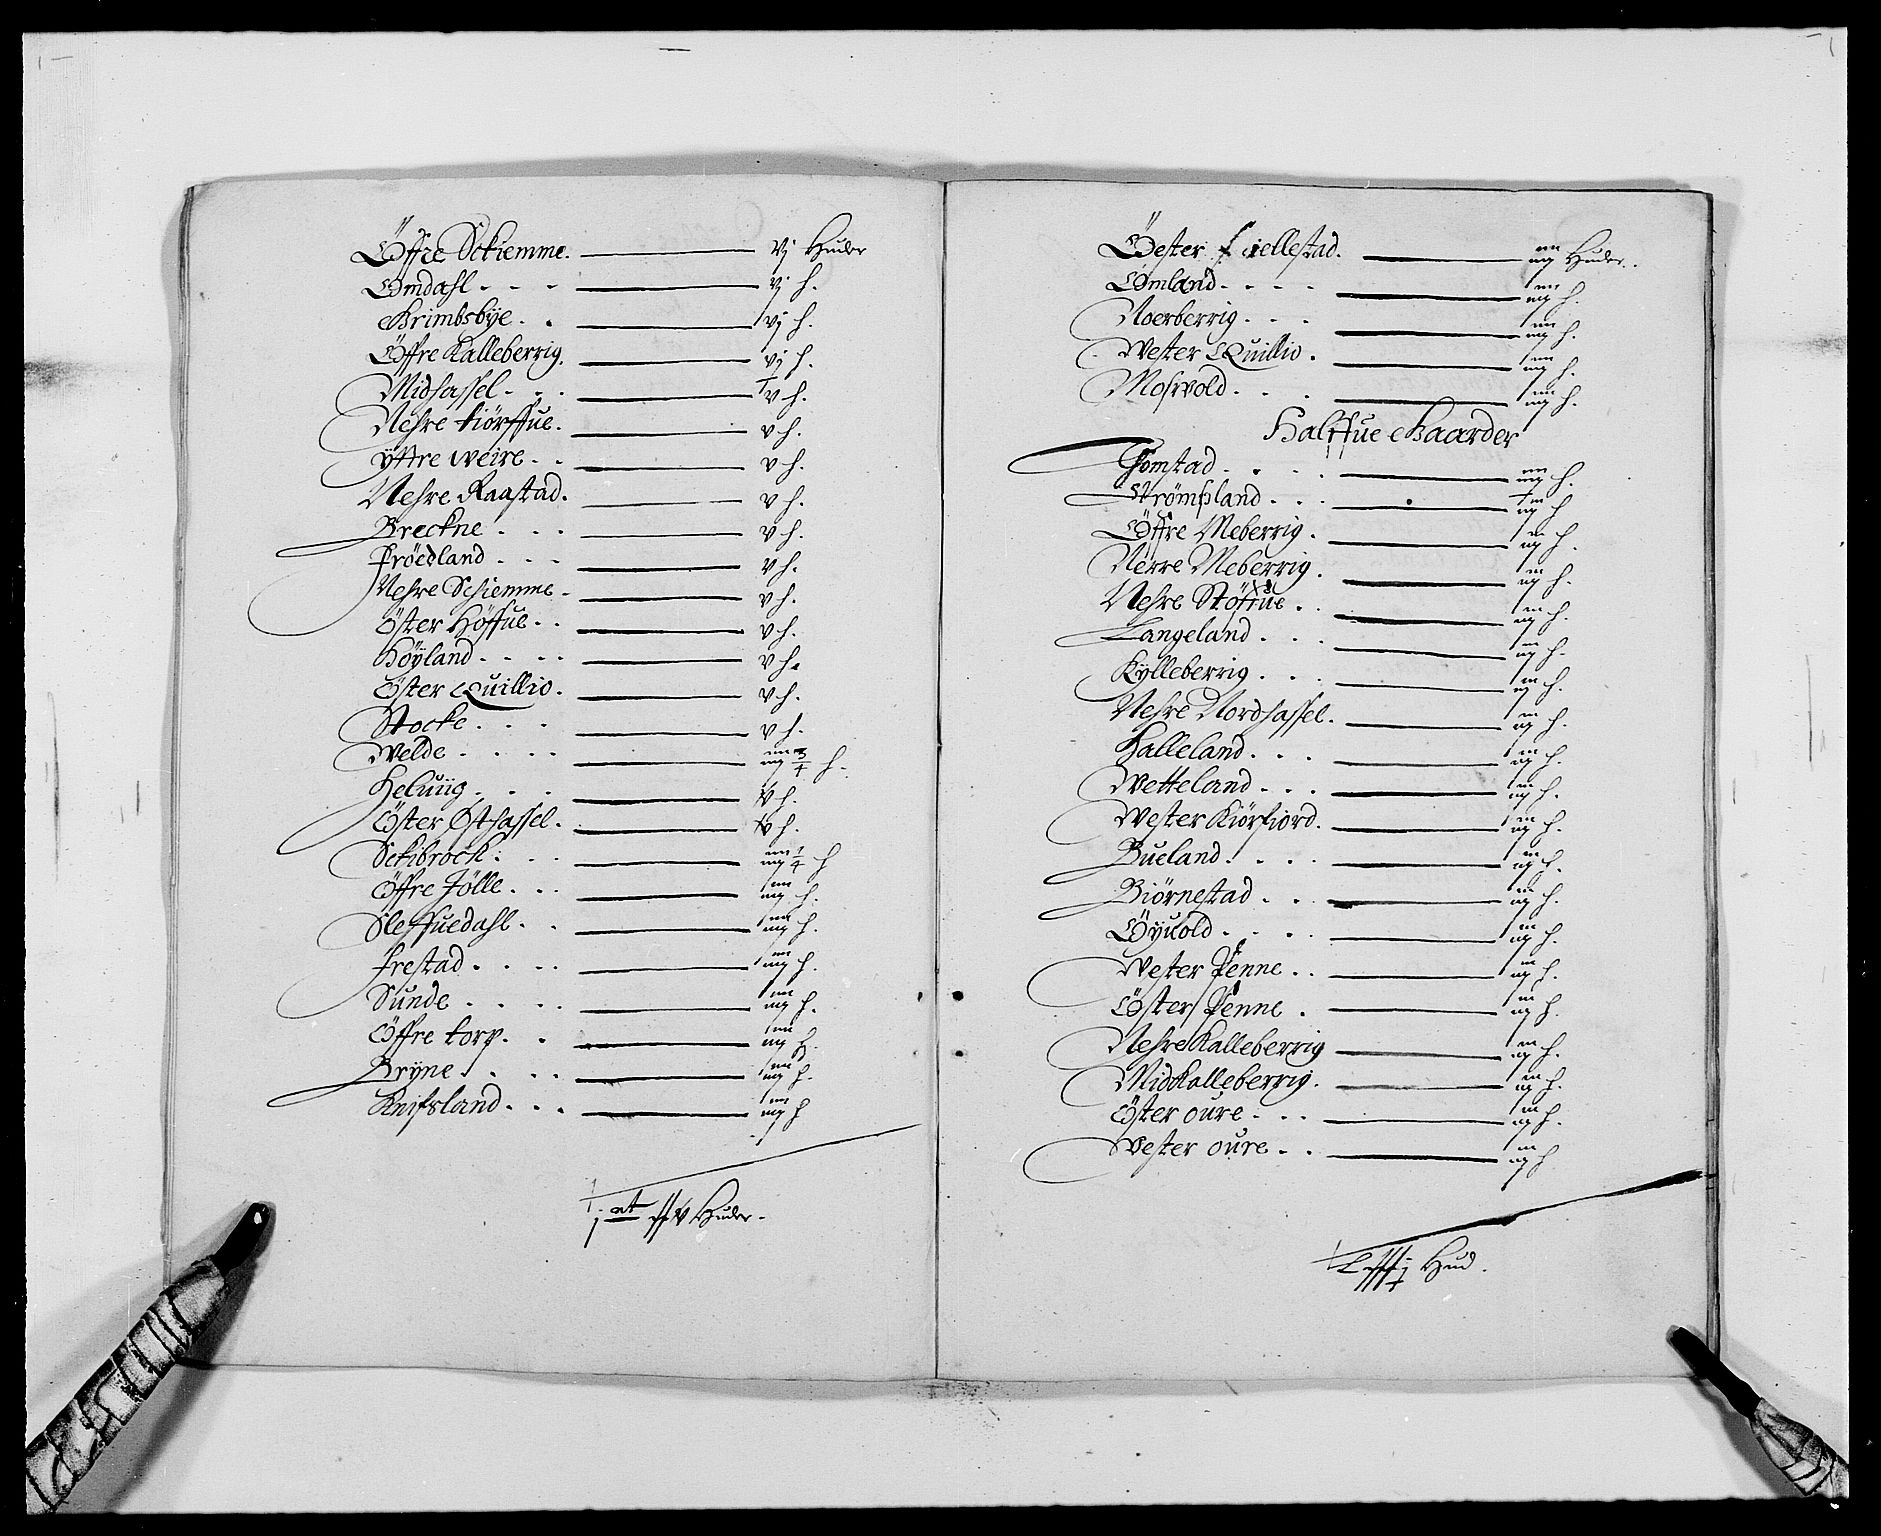 Öffre Sckiemme. vj Huder
Omdahl vj h.
Grimbsbÿe vj h.
Öffre Kalleberrig. vj h.
Midhassel v h.
Nehre Kiörffue. v h.
ÿttre weire v h.
Nehre Raastad. v h.
Breckne v h.
Fröedland v h.
Nehre Schiemme v h.
Öster Höffue v h.
Höÿland v h.
Öster Quillio. v h.
Stocke v h.
Welde iiij 3/4 h.
Heluiig v h.
Öster Østhassel. v h.
Sckibrock iiij 1/4 h
Öffre Jölle iiij h.
Sleffuedahl iiij h.
Frestad iiij h.
Sunde iiij h.
Öffre torp. iiij h.
Brÿne iiij h.
Knifsland iiij h
Huder.
Öester fiellestad. iiij Huder.
Omland iiij h.
Noerberrig iiij h.
Wester Quillio. iiij h.
Moswold iiij h.
Halffue Gaarder
Tomstad iiij h.
Strømbsland iij h
Öffre Meberrig. iij h.
Nerre Meberrig. iij h.
Nehre Støffue iij h.
Langeland iij h.
Kÿlleberrig iij h.
Nehre Nordhassel. iij h.
Halleland iij h.
Wetteland iij h.
Wester Kiörfiord. iij h.
Bueland iij h.
Biörnestad iij h.
Öÿuold iij h.
Wester Penne iij h.
Öster Penne iij h.
Nehre Kalleberrig iij h.
Midkalleberrig. iij h.
Öster oure iij h.
Wester oure iij h
Hud.